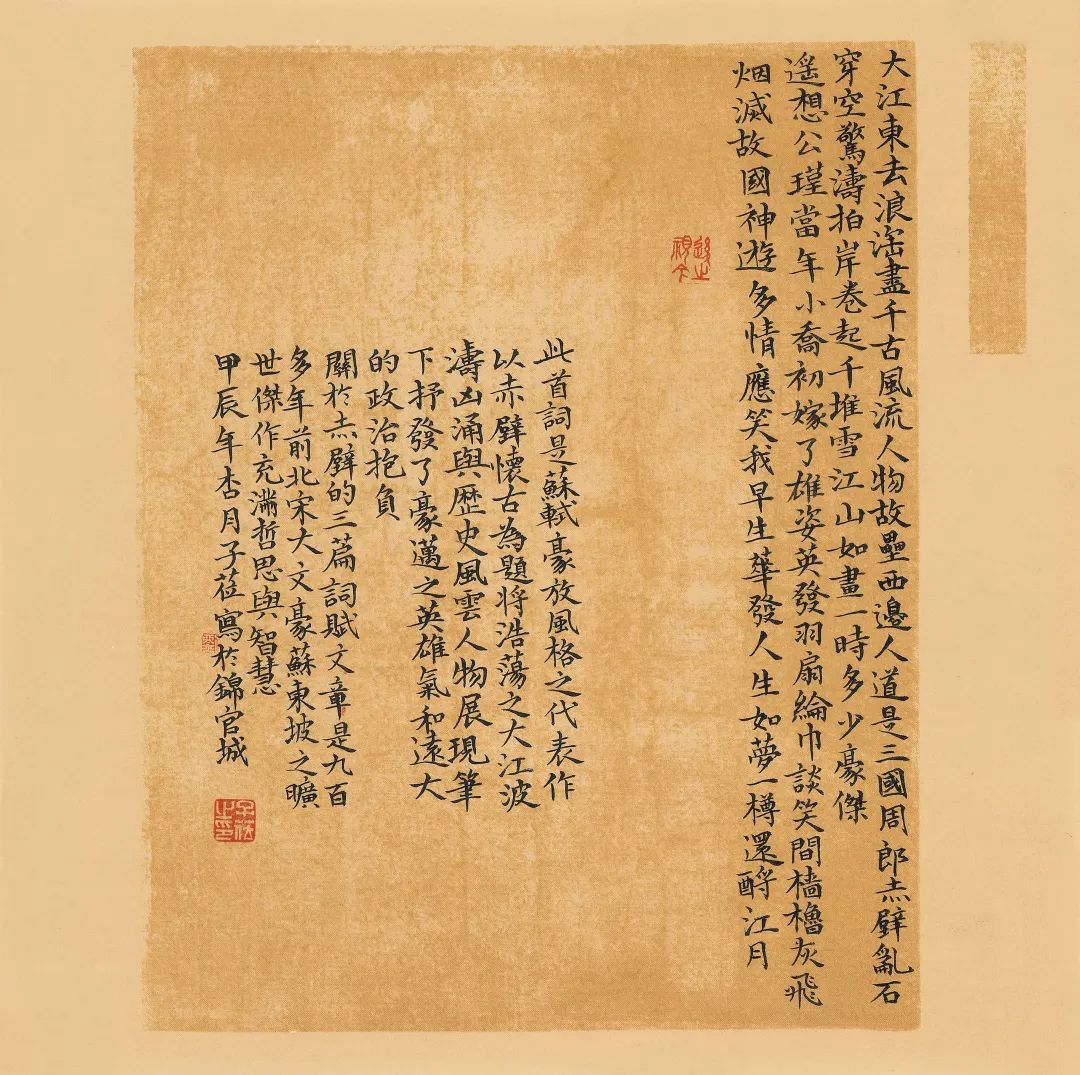 大江東去浪淘盡千古風流人物故壘西邊人道是三國周郎赤壁亂石
穿空驚濤拍岸卷起千堆雪江山如畫一時多少豪傑
遥想公瑾當年小喬初嫁了雄姿英發羽扇綸巾談笑間檣櫓灰飛
烟滅故國神遊多情應笑我早生華發人生如夢一樽還酹江月
此首詞是蘇軾豪放風格之代表作
以赤壁懷古為題将浩蕩之大江波
濤凶涌與歷史風雲人物展現筆
下抒發了豪邁之英雄氣和遠大
的政治抱負
關於赤壁的三篇詞賦文章是九百
多年前北宋大文豪蘇東坡之曠
世傑作充滿哲思與智慧
甲辰年杏月子莅寫於錦官城
子莅之印